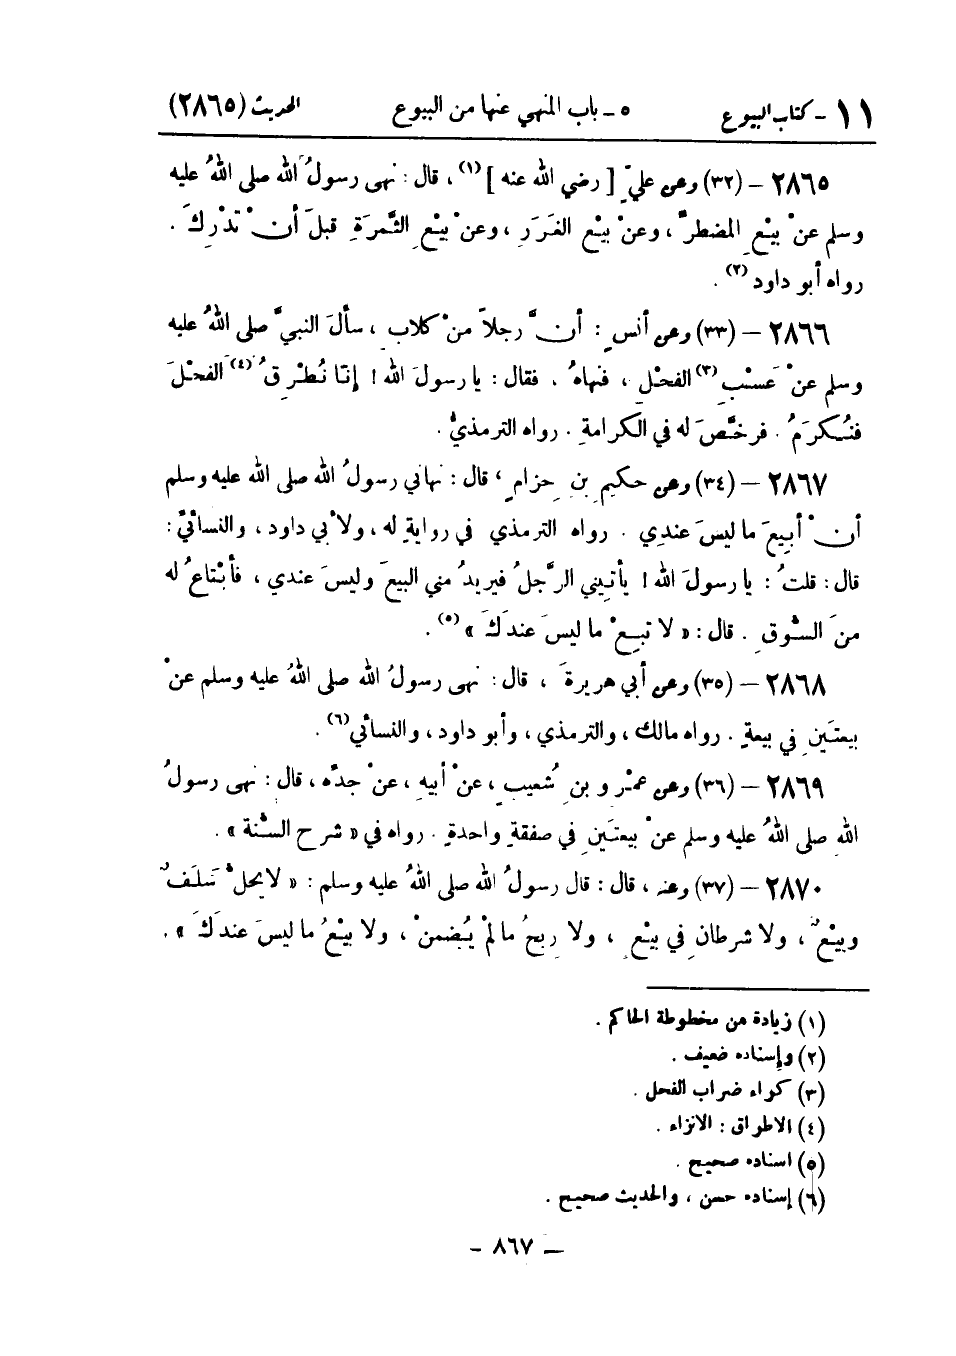 ١١ - كتاب البيوع ٥ - باب المنهي عنها من البيوع الحديث (٢٨٦٥)
٢٨٦٥ - (٣٢) وعن عليٍّ [ رضي الله عنه ] (١) ، قال : نهى رسولُ الله صلى اللهُ عليه
وسلم عنْ بيْعِ المضطرِّ ، وعنْ بيْع الغَرَرِ ، وعنْ بيْعِ الثَّمرَةِ قبلَ أنْ تدْرِكَ .
رواه أبو داود (٢) .
٢٨٦٦ - (٣٣) وعن أنسٍ : أنَّ رجلاً منْ كلابٍ ، سألَ النبيَّ صلى اللهُ عليه
وسلم عنْ عَسْبِ (٣) الفحْلِ ، فنهاهُ . فقال : يا رسولَ الله ! إنَّا نُطْرِقُ (٤) الفحْلَ
فنُكرَمُ . فرخَّصَ له في الكرامةِ . رواه الترمذيُّ .
٢٨٦٧ - (٣٤) وعن حكيمِ بنِ حِزامٍ ، قال : نهاني رسولُ الله صلى الله عليه وسلم
أنْ أبيعَ ما ليسَ عندِي . رواه الترمذي في روايةٍ له ، ولأبي داود ، والنسائيِّ :
قال : قلتُ : يا رسولَ الله ! يأتيني الرَّجلُ فيريدُ مني البيعَ وليسَ عندي ، فأبْتاعُ له
منَ السُّوقِ . قال : « لا تبعْ ما ليسَ عندَكَ » (٥) .
٢٨٦٨ - (٣٥) وعن أبي هريرةَ ، قال : نهى رسولُ الله صلى اللهُ عليه وسلم عنْ
بيعتَينِ في بيعةٍ . رواه مالك ، والترمذي ، وأبو داود ، والنسائي (٦) .
٢٨٦٩ - (٣٦) وعن عمْرو بنِ شُعيبٍ ، عنْ أبيهِ ، عنْ جدِّه ، قال : نهى رسولُ
اللهِ صلى اللهُ عليه وسلم عنْ بيعتَينِ في صفقةٍ واحدةٍ . رواه في « شرح السُّنة » .
٢٨٧٠ - (٣٧) وعنه ، قال : قال رسولُ الله صلى اللهُ عليه وسلم : « لا يحلُّ سَلَفٌ
وبيْعٌ ، ولا شرطانِ في بيْعٍ ، ولا ربحُ ما لمْ يُضمنْ ، ولا بيْعُ ما ليسَ عندَكَ » .
(١) زيادة من مخطوطة الحاكم .
(٢) وإسناده ضعيف .
(٣) كراء ضراب الفحل .
(٤) الاطراق : الانزاء .
(٥) اسناده صحيح .
(٦) إسناده حسن ، والحديث صحيح .
- ٨٦٧ -